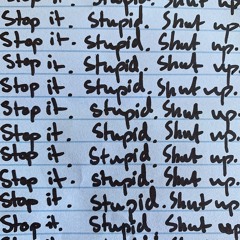 Stop it. Stupid. Shut up.
Stop it. Stupid. Shut up.
Stop it. Stupid. Shut up.
Stop it. Stupid. Shut up.
Stop it. Stupid. Shut up.
Stop it. Stupid. Shut up.
Stop it. Stupid. Shut up.
Stop it. Stupid. Shut up.
Stop it. Stupid. Shut up.
Stop it. Stupid. Shut up.